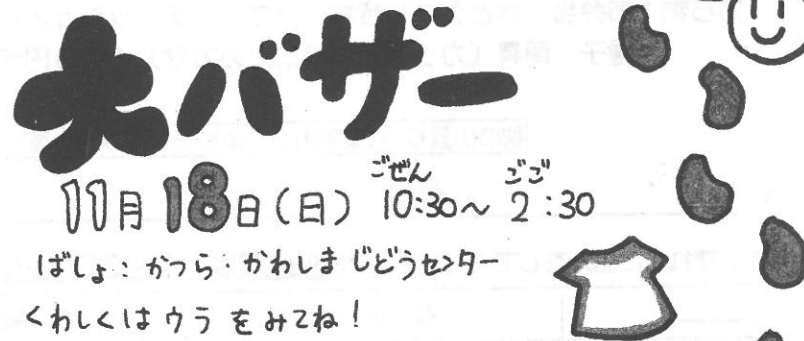 大バザー
11月18日(日) ごぜん10:30～ ごご2:30
ばしょ:かつら・かわしまじどうセンター
くわしくはウラをみてね!